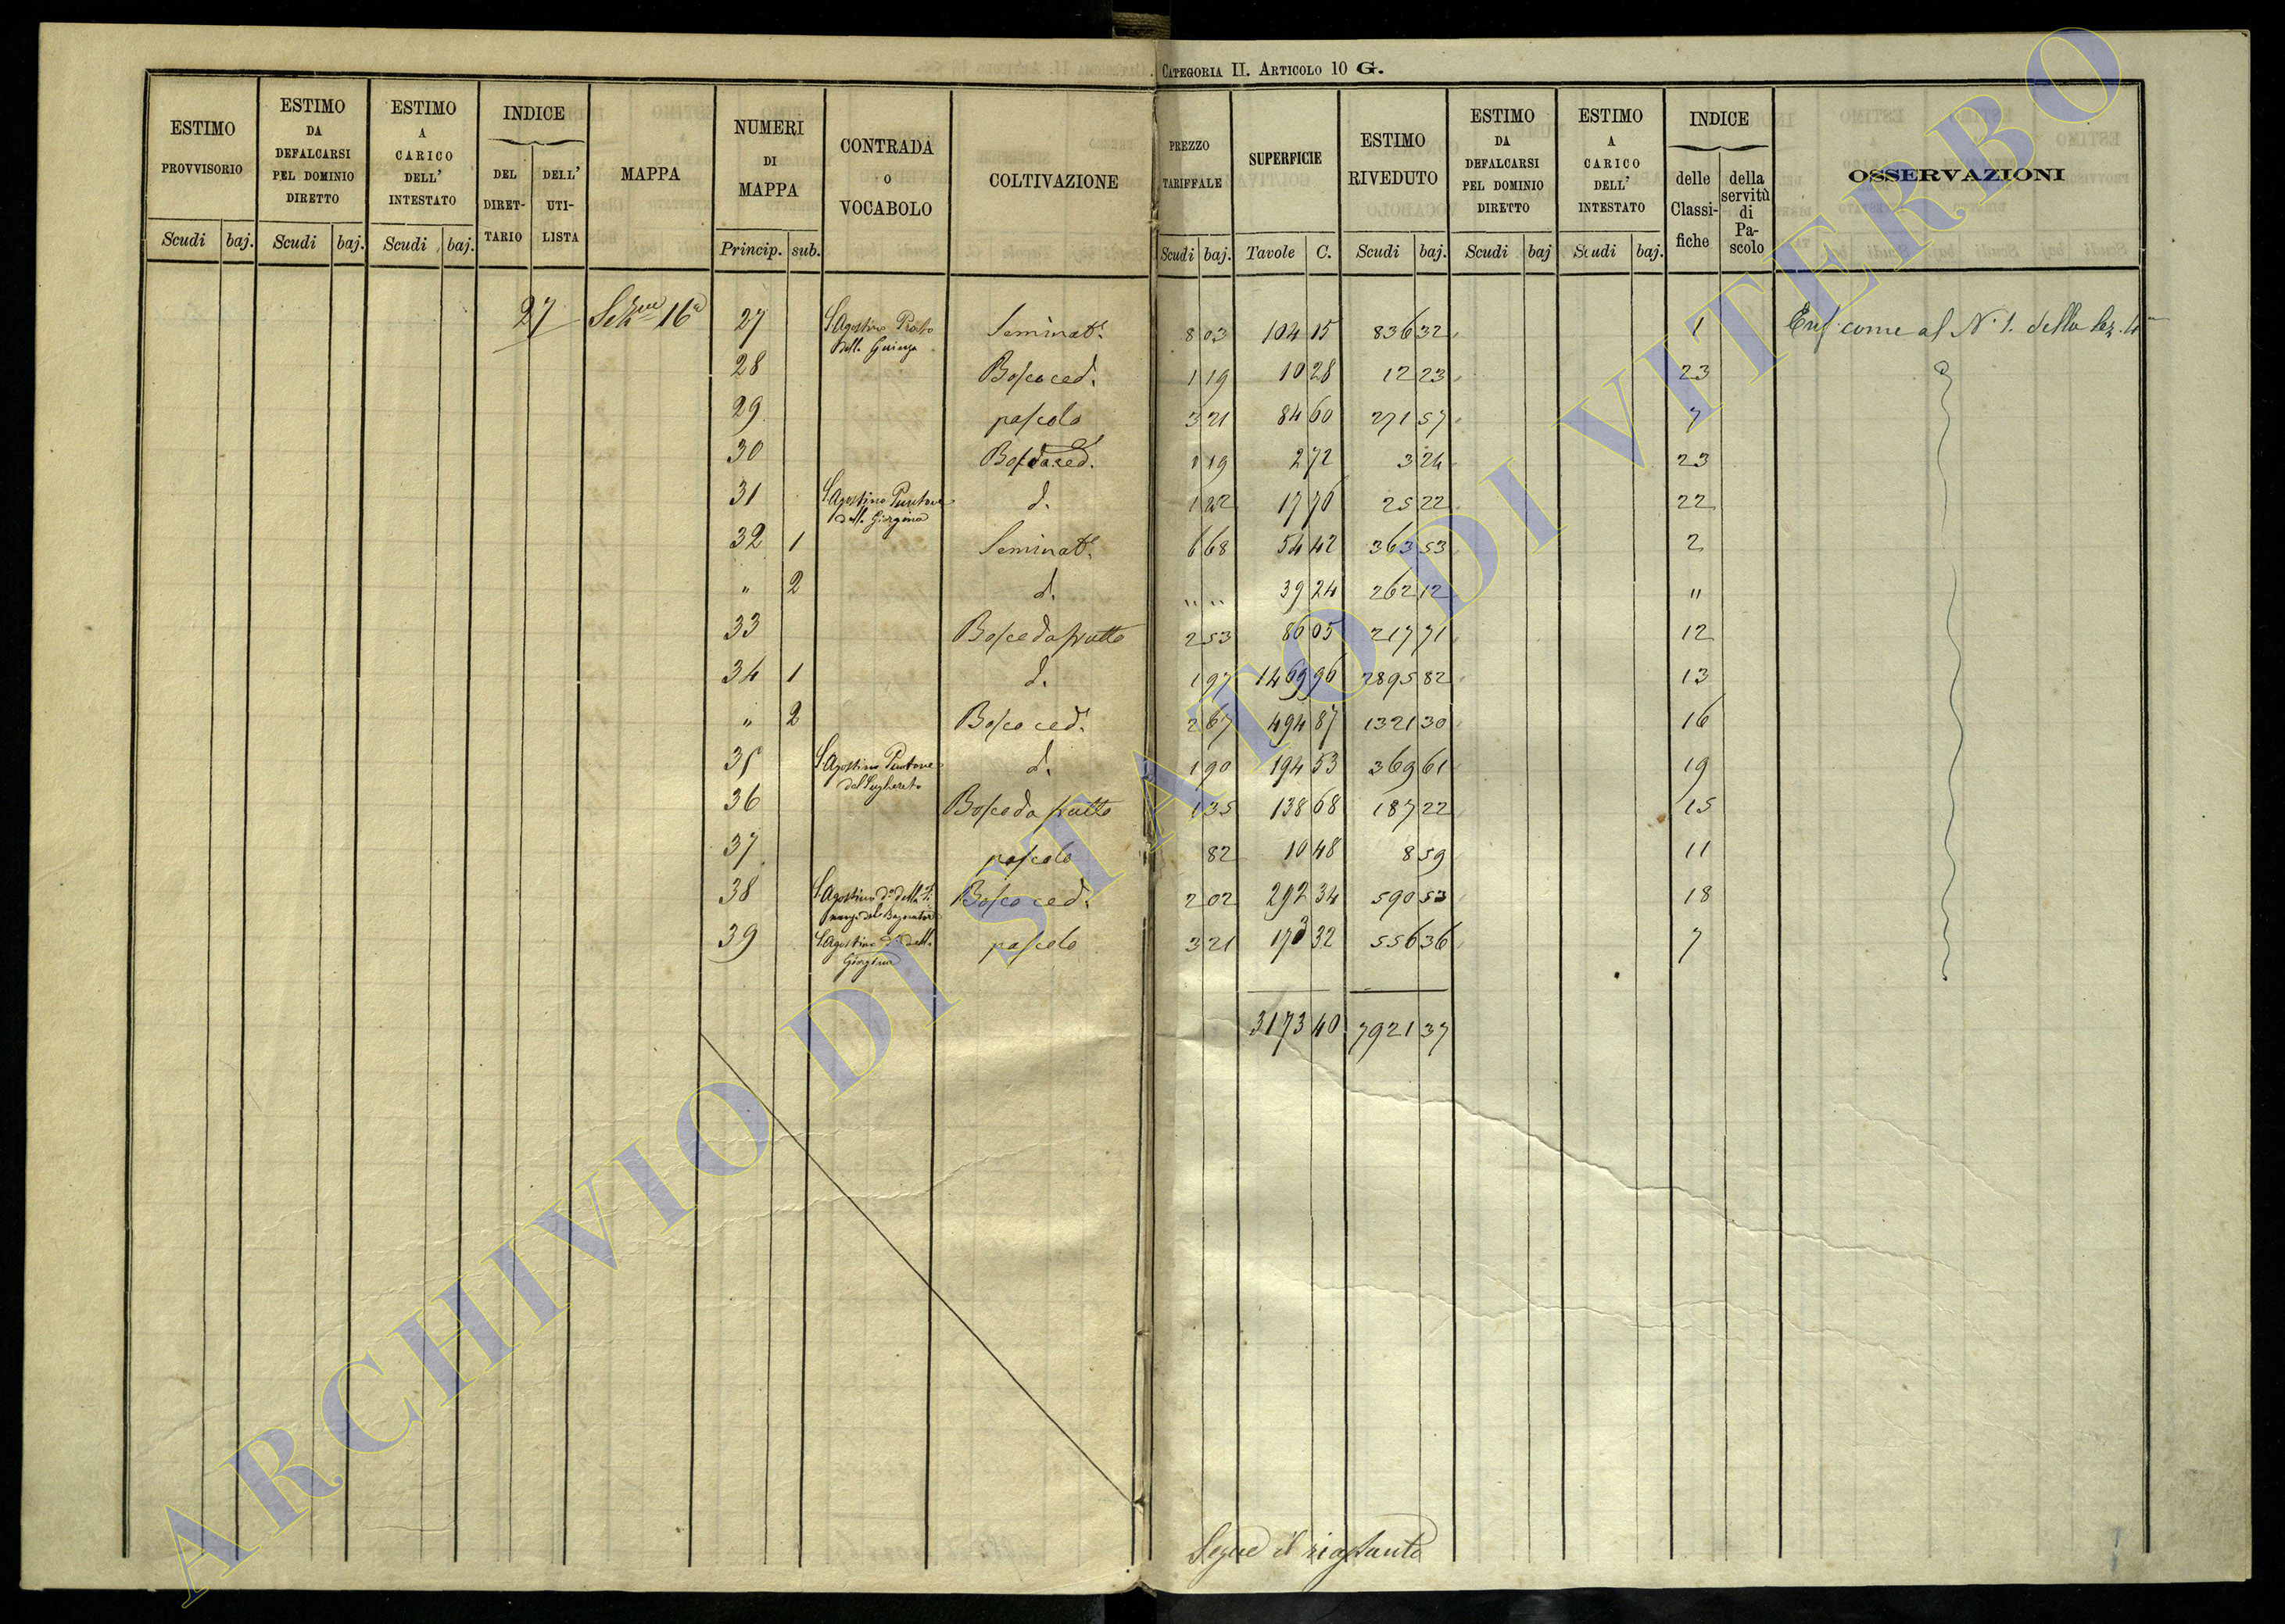 CATEGORIA II. ARTICOLO 10 G.
ESTIMO PROVVISORIO Scudi baj.
ESTIMO DA DEFALCARSI PEL DOMINIO DIRETTO Scudi baj.
ESTIMO A CARICO DELL' INTESTATO Scudi baj.
INDICE DEL DIRET- TARIO DELL' UTI- LISTA
MAPPA
NUMERI DI MAPPA Princip. sub.
CONTRADA O VOCABOLO
COLTIVAZIONE
PREZZO TARIFFALE Scudi baj.
SUPERFICIE Tavole C.
ESTIMO RIVEDUTO Scudi baj.
ESTIMO DA DEFALCARSI PEL DOMINIO DIRETTO Scudi baj
ESTIMO A CARICO DELL' INTESTATO Scudi baj.
INDICE delle Classi- fiche della servitù di Pa- scolo
OSSERVAZIONI
27 Sezne 16a 27 S Agostino Prato Seminat. 8 03 104 15 836 32 1 Enf. come al N. 1. della Sez. 4a
della
28 Bosco ced. 1 19 10 28 12 23 23
29 pascolo 3 21 84 60 271 57 7
30 Bosco ced. 1 19 2 72 3 24 23
31 S Agostino Puntone d. 1 42 17 76 25 22 22
della Giorgina
32 1 Seminat. 6 68 54 42 363 53 2
" 2 d. " " 39 24 262 12 "
33 Bosco da frutto 2 53 86 05 217 71 12
34 1 d. 1 97 1469 96 2895 82 13
" 2 Bosco ced. 2 67 494 87 1321 30 16
35 S Agostino Puntone d. 1 90 194 53 369 61 19
del Sughereto
36 Bosco da frutto 1 35 138 68 187 22 15
37 pascolo 82 10 48 8 59 11
38 S Agostino do della Bosco ced. 2 02 292 34 590 53 18
39 S Agostino do della pascolo 3 21 173 32 556 36 7
Giorgina
3173 40 7921 37
Segue il riassunto
ARCHIVIO DI STATO DI VITERBO